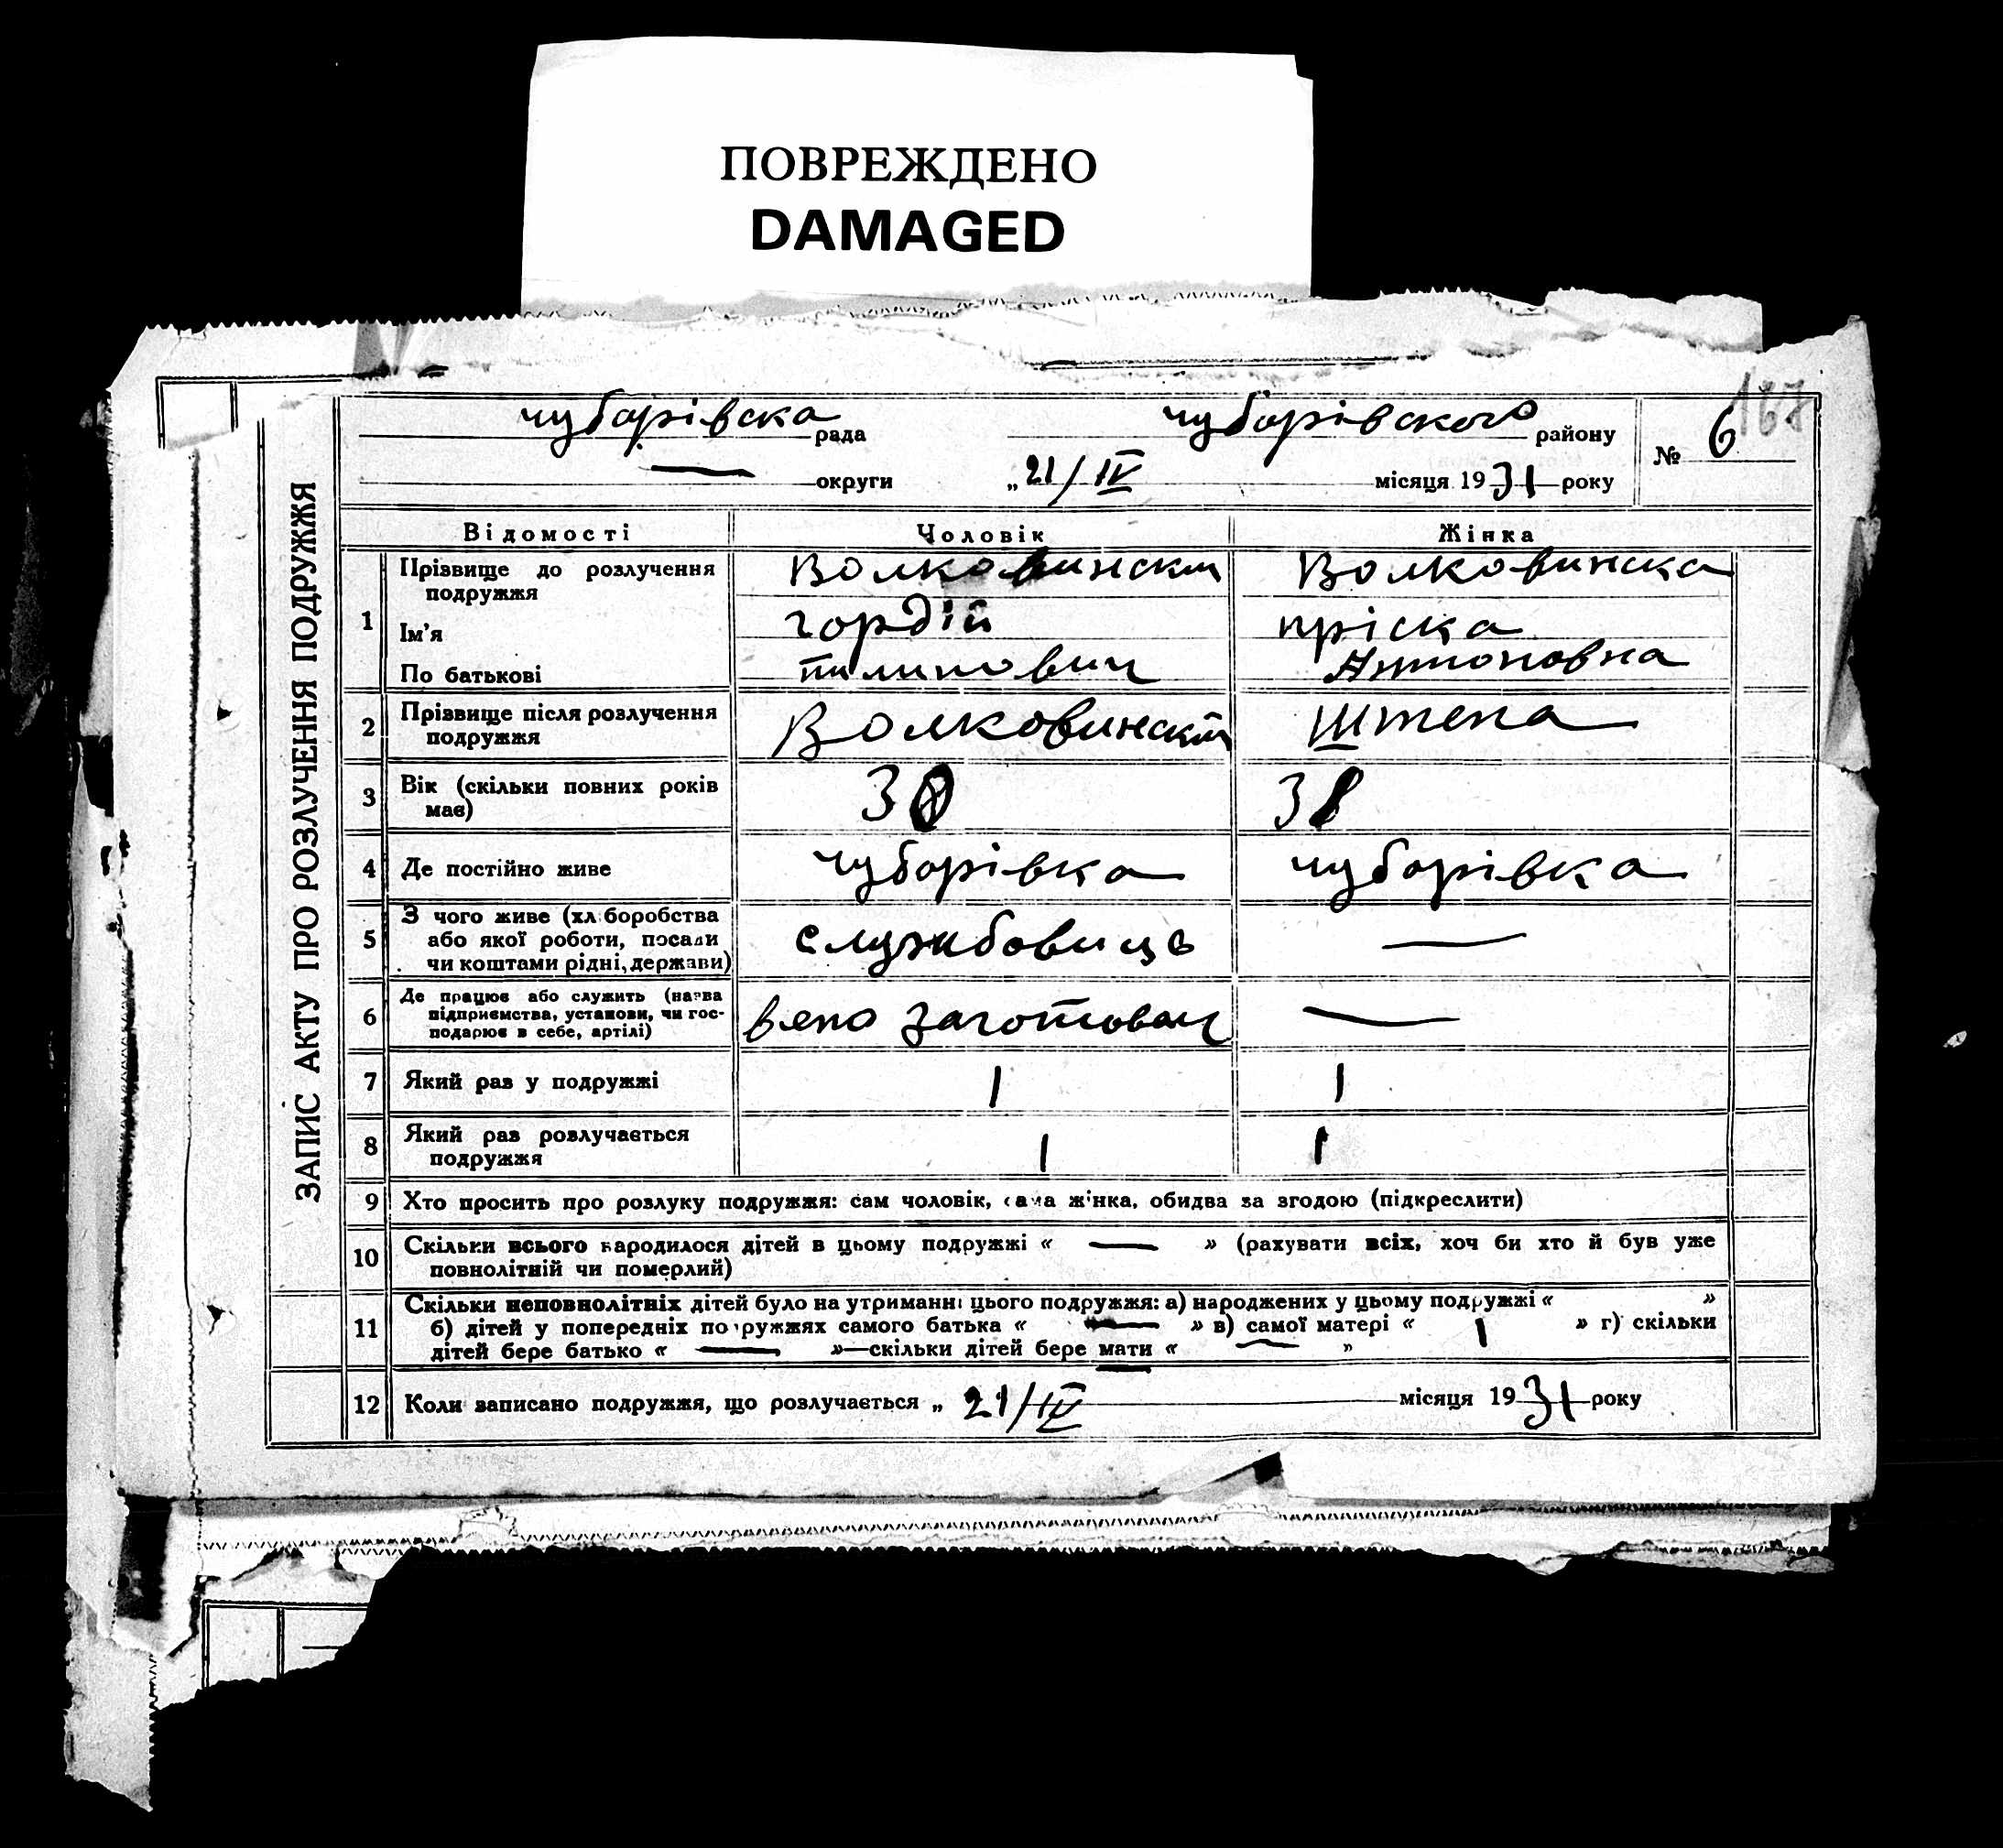 ПОВРЕЖДЕНО
DAMAGED
167
чубарівска рада чубарівского району № 6
— округи „21/IV місяця 1931 року
ЗАПИС АКТУ ПРО РОЗЛУЧЕННЯ ПОДРУЖЖЯ
Відомості Чоловік Жінка
1 Прізвище до розлучення подружжя Волковинский Волковинска
Ім'я гордій пріска
По батькові пилипович Антоновна
2 Прізвище після розлучення подружжя Волковинский Штепа
3 Вік (скільки повних років має) 38
4 Де постійно живе чубарівка чубарівка
5 З чого живе (хліборобства або якої роботи, посади чи коштами рідні, держави) службовиць —
6 Де працює або служить (назва підприємства, установи, чи господарює в себе, артілі) —
7 Який раз у подружжі 1 1
8 Який раз розлучається подружжя 1 1
9 Хто просить про розлуку подружжя: сам чоловік, сама жінка, обидва за згодою (підкреслити)
10 Скільки всього народилося дітей в цьому подружжі « — » (рахувати всіх, хоч би хто й був уже
повнолітній чи померлий)
11 Скільки неповнолітніх дітей було на утриманні цього подружжя: а) народжених у цьому подружжі « »
б) дітей у попередніх подружжях самого батька « — » в) самої матері « 1 » г) скільки
дітей бере батько « — »—скільки дітей бере мати « — »
12 Коли записано подружжя, що розлучається „ 21/IV місяця 1931 року